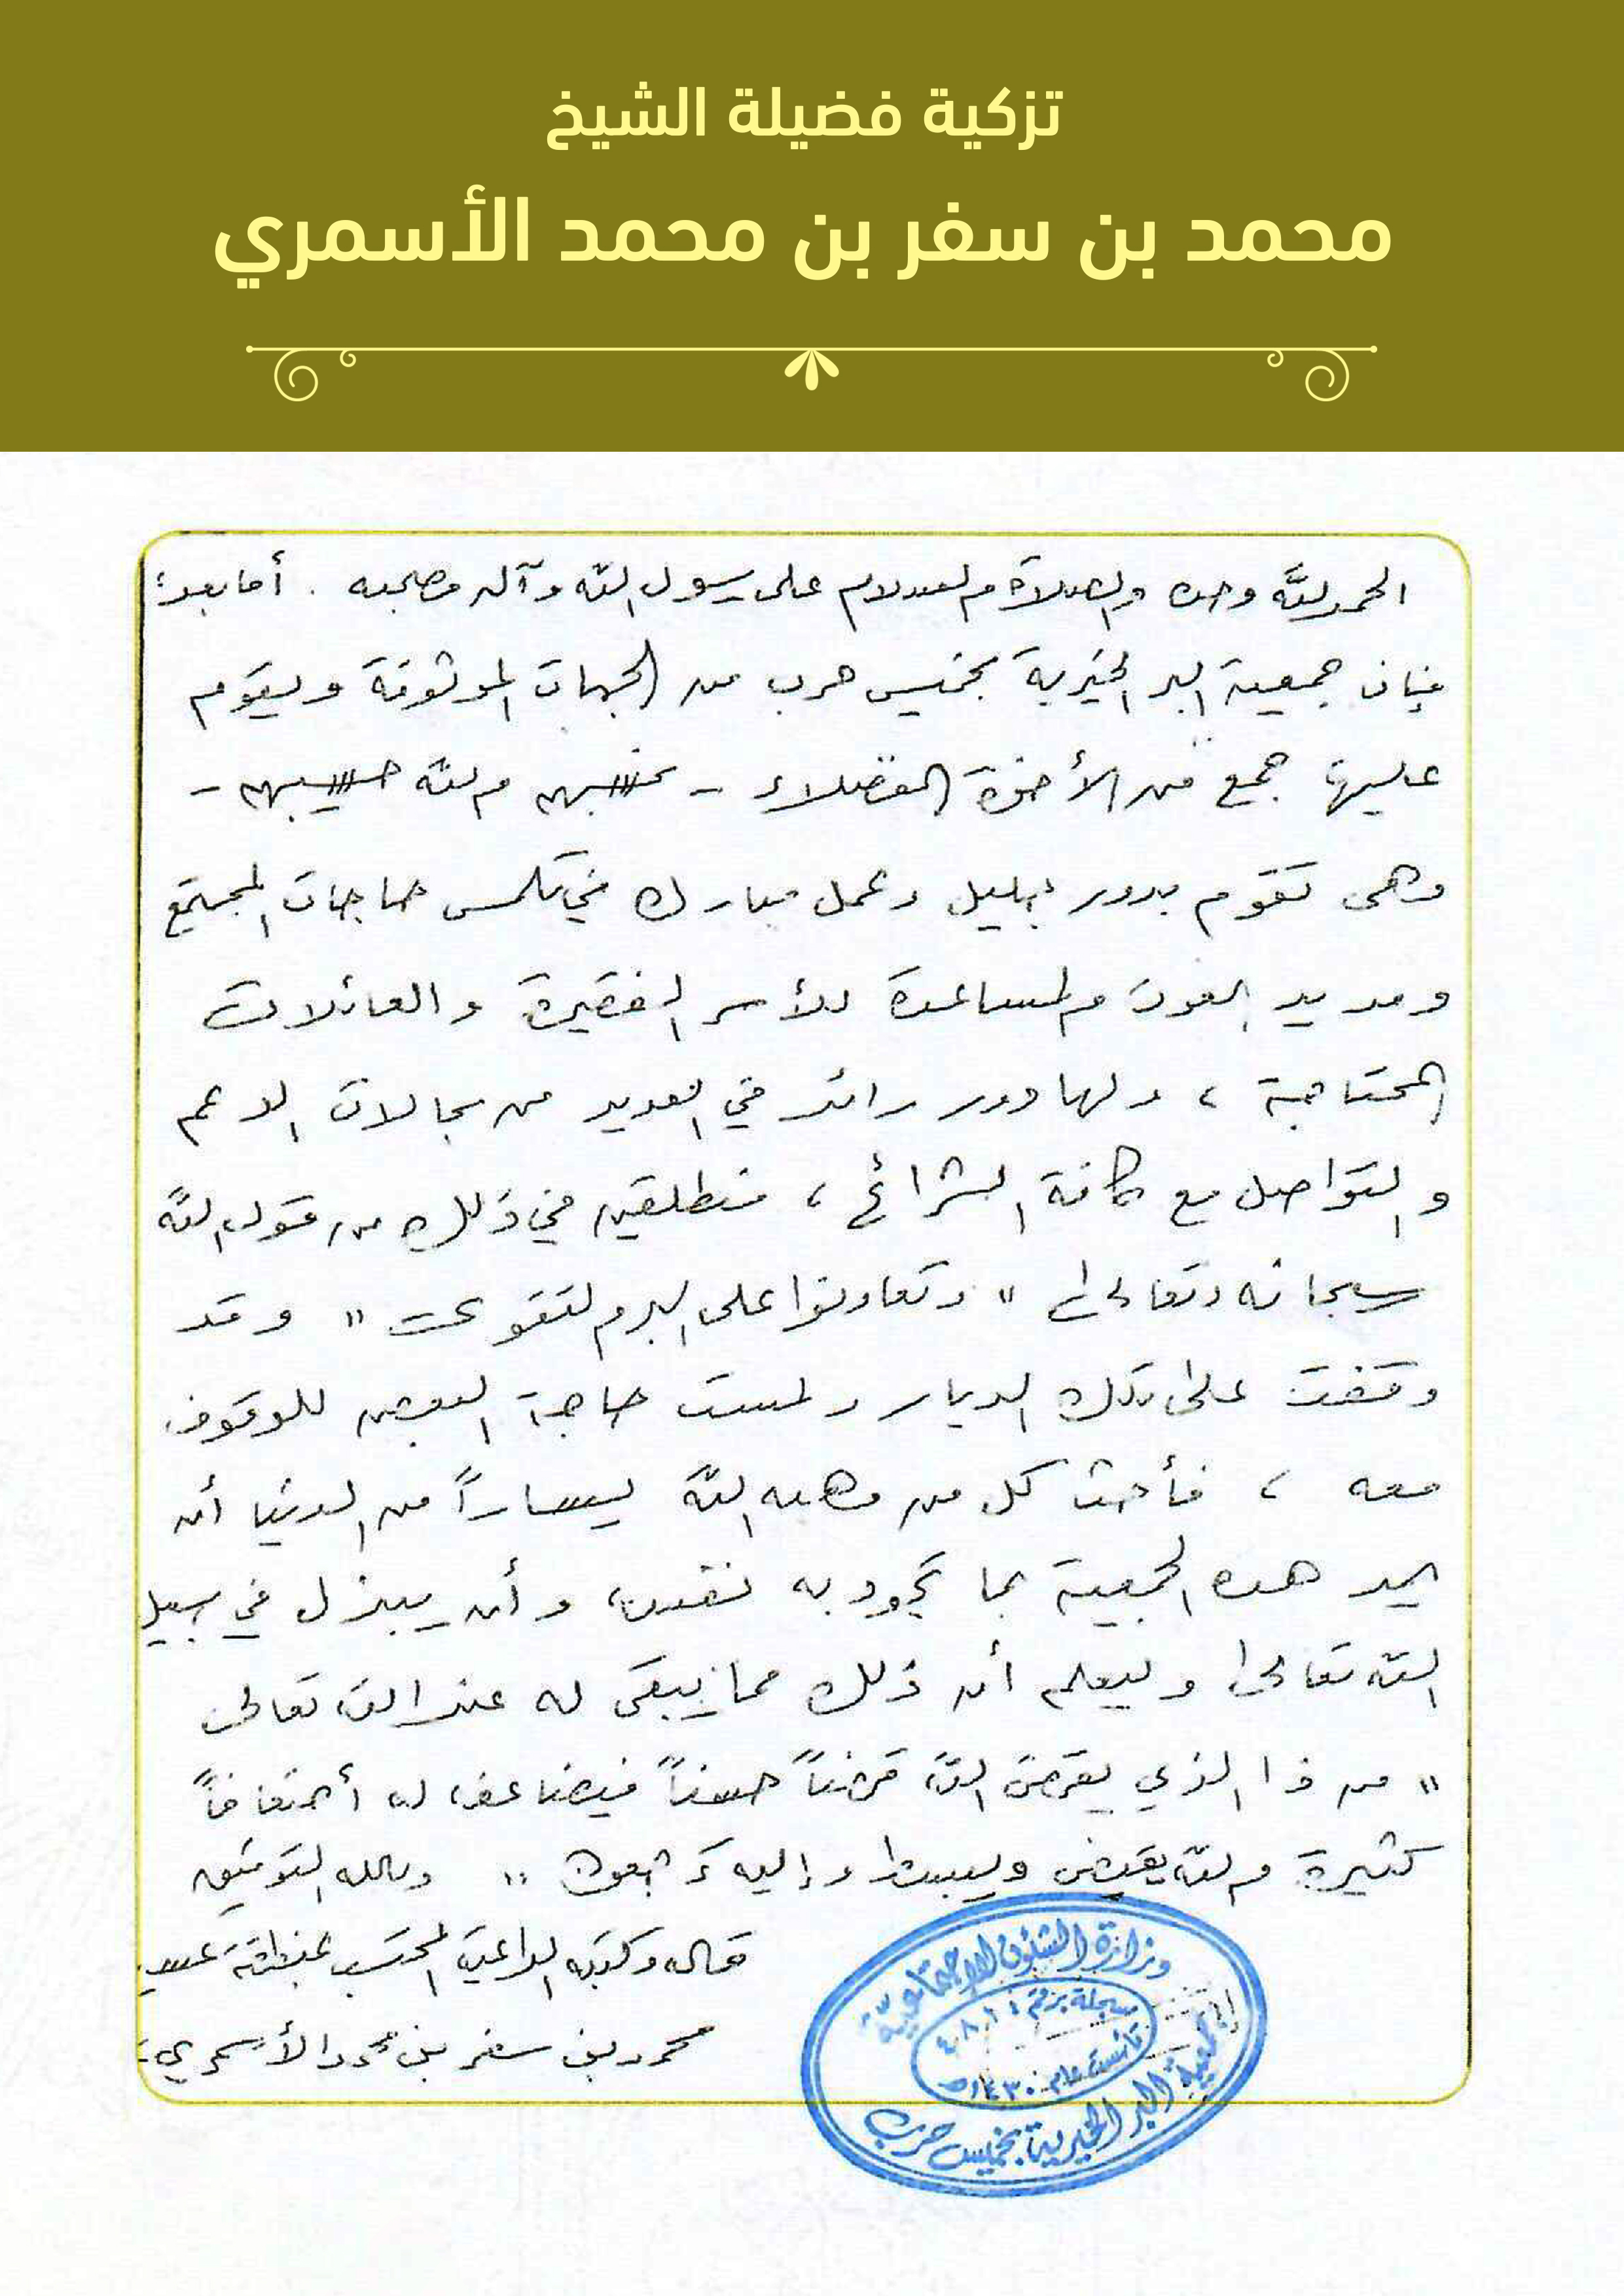 تزكية فضيلة الشيخ
محمد بن سفر بن محمد الأسمري
الحمد لله وحده والصلاة والسلام على رسول الله وآله وصحبه . أما بعد:
فإن جمعية البر الخيرية بخميس حرب من الجهات الموثوقة ويقوم
عليها جمع من الأخوة الفضلاء - نحسبهم والله حسيبهم -
وهي تقوم بدور جليل وعمل مبارك في تلمس حاجات المجتمع
ومد يد العون والمساعدة للأسر الفقيرة والعائلات
المحتاجة ، ولها دور رائد في العديد من مجالات الدعم
والتواصل مع كافة الشرائح ، منطلقين في ذلك من قول الله
سبحانه وتعالى " وتعاونوا على البر والتقوى " وقد
وقفت على تلك الديار ولمست حاجة البعض للوقوف
معه ، فأحث كل من وهبه الله يساراً من الدنيا أن
يمد هذه الجمعية بما تجود به نفسه وأن يبذل في سبيل
الله تعالى وليعلم أن ذلك مما يبقى له عند الله تعالى
" من ذا الذي يقرض الله قرضاً حسناً فيضاعفه له أضعافاً
كثيرة والله يقبض ويبسط وإليه ترجعون " وبالله التوفيق
قاله وكتبه الداعية المحتسب بمنطقة عسير
محمد بن سفر بن محمد الأسمري
وزارة الشئون الاجتماعية
مسجلة برقم
تأسست عام ١٤٣٠هـ
جمعية البر الخيرية بخميس حرب